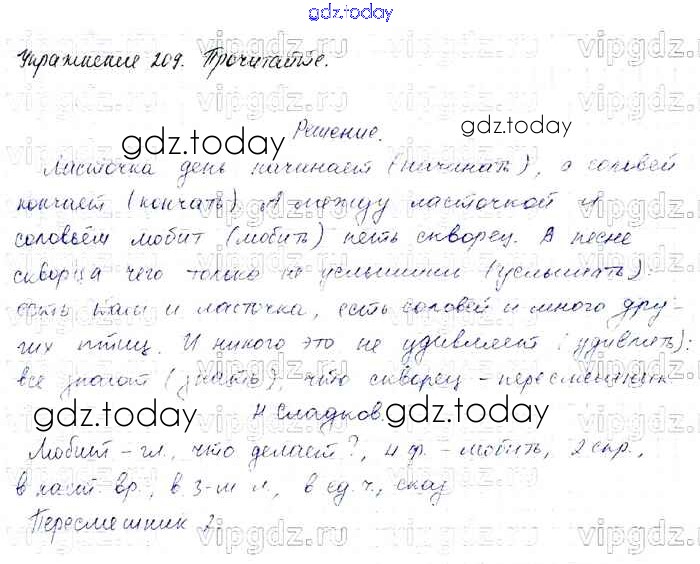 gdz.today
Упражнение 209. Прочитайте.
Решение.
Ласточка день начинает (начинать), а соловей
кончает (кончать). А между ласточкой и
соловьём любит (любить) петь скворец. А в песне
скворца чего только не услышишь (услышать):
есть там и ласточка, есть соловей и много дру-
гих птиц. И никого это не удивляет (удивлять):
все знают (знать), что скворец - пересмешник.
Н. Сладков.
Любит - гл., что делает?, н.ф. - любить, 2 спр.,
в наст. вр., в 3-м л., в ед. ч., сказ
Пересмешник 2